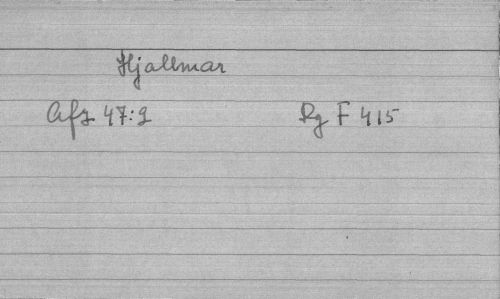 Hjallmar
Afz 47:2 Rg F 415